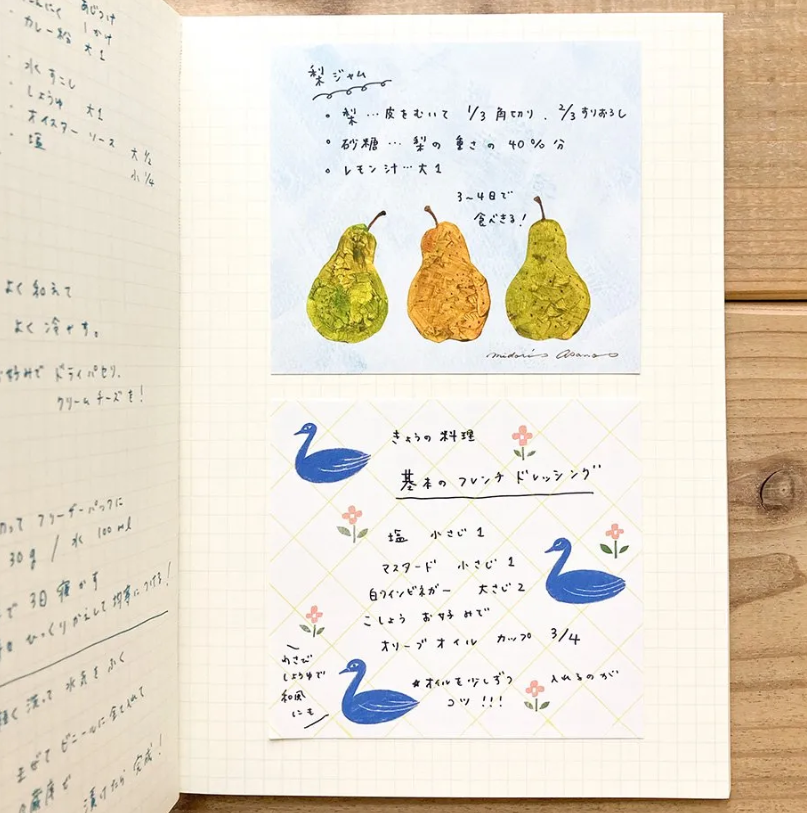 あじつけ
にんにく 1かけ
・カレー粉 大1
・水 すこし
・しょうゆ 大1
・オイスターソース 大1/2
・塩 小1/4
よく和えて
よく冷やす。
お好みで ドライパセリ、
クリームチーズを!
フリーザーパックに
30g / 水 100ml
で 3日 寝かす
ひっくりかえして 均等につける!
軽く洗って 水気をふく
まぜて ビニールに全を入れて
冷蔵庫で
漬けたら 完成!
梨ジャム
○ 梨 … 皮をむいて 1/3 角切り、2/3 すりおろし
○ 砂糖 … 梨の重さの 40%分
○ レモン汁 … 大1
3〜4日で
食べきる!
midori asano
きょうの料理
基本のフレンチドレッシング
塩 小さじ1
マスタード 小さじ1
白ワインビネガー 大さじ2
こしょう お好みで
オリーブオイル カップ 3/4
わさび
しょうゆで
和風
にも
★オイルを少しずつ 入れるのが
コツ!!!